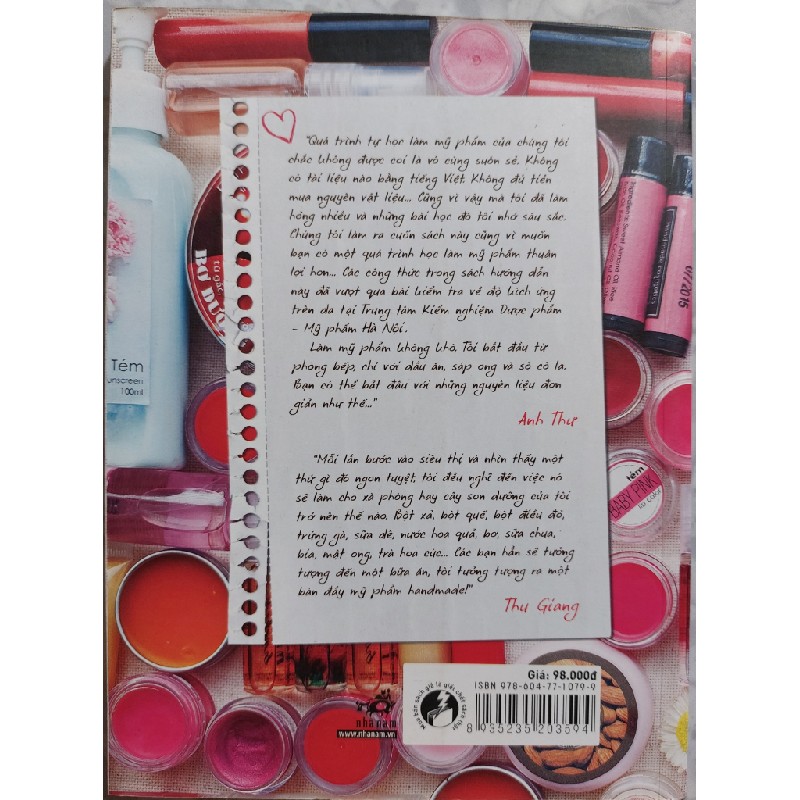 "Quá trình tự học làm mỹ phẩm của chúng tôi
chắc không được coi là vô cùng suôn sẻ. Không
có tài liệu nào bằng tiếng Việt. Không đủ tiền
mua nguyên vật liệu... Cũng vì vậy mà tôi đã làm
hỏng nhiều và những bài học đó tôi nhớ sâu sắc.
Chúng tôi làm ra cuốn sách này cũng vì muốn
bạn có một quá trình học làm mỹ phẩm thuận
lợi hơn... Các công thức trong sách hướng dẫn
này đã vượt qua bài kiểm tra về độ kích ứng
trên da tại Trung tâm Kiểm nghiệm Dược phẩm
– Mỹ phẩm Hà Nội.
Làm mỹ phẩm không khó. Tôi bắt đầu từ
phòng bếp, chỉ với dầu ăn, sáp ong và sô cô la.
Bạn có thể bắt đầu với những nguyên liệu đơn
giản như thế..."
Anh Thư
"Mỗi lần bước vào siêu thị và nhìn thấy một
thứ gì đó ngon tuyệt, tôi đều nghĩ đến việc nó
sẽ làm cho xà phòng hay cây son dưỡng của tôi
trở nên thế nào. Bột xả, bột quế, bột điều đỏ,
trứng gà, sữa dê, nước hoa quả, bơ, sữa chua,
bia, mật ong, trà hoa cúc... Các bạn hẳn sẽ tưởng
tượng đến một bữa ăn, tôi tưởng tượng ra một
bàn đầy mỹ phẩm handmade!"
Thu Giang
Tém
sunscreen
100ml
từ gấc
07/2015
tém
BABY PINK
lip color
nhã nam
www.nhanam.vn
Mua bán sách giả là giết chết sách thật
Giá: 98.000đ
ISBN 978-604-77-1079-9
8 935235 203594